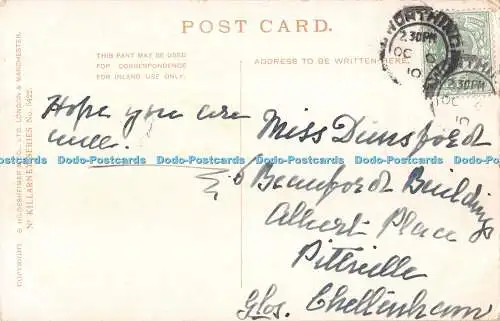 POST CARD.
THIS PART MAY BE USED
FOR CORRESPONDENCE
FOR INLAND USE ONLY.
ADDRESS TO BE WRITTEN HERE.
WORTHING
2.30PM
OC
10
2.30PM
OC
10
Hope you are
well.
Miss Dunsford
Beaufort Buildings
Albert Place
Pittville
Glos. Cheltenham
Dodo-Postcards Dodo-Postcards Dodo-Postcards Dodo-Postcards Dodo-Postcards Dodo-Postcards
COPYRIGHT. HILDESHEIMER & CO., LTD. LONDON & MANCHESTER.
KILLARNEY SERIES No. 5422.